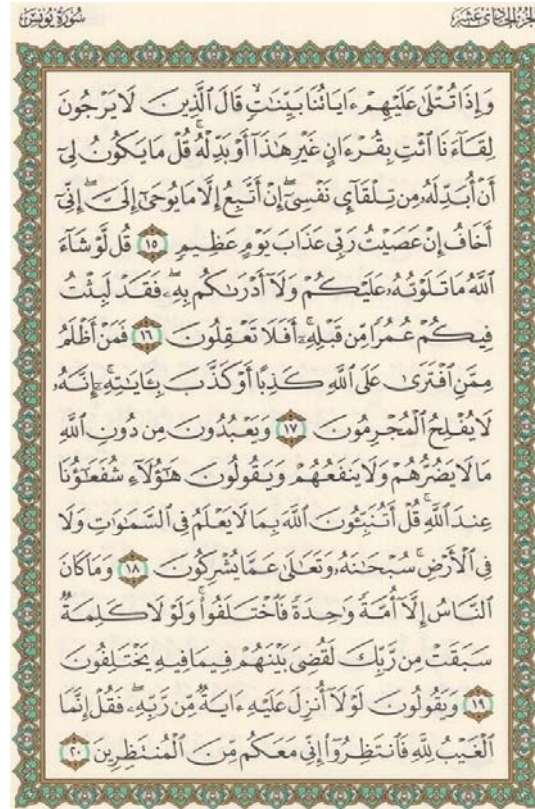 الجزء الحادي عشر
سورة يونس
وَإِذَا تُتْلَىٰ عَلَيْهِمْ ءَايَاتُنَا بَيِّنَٰتٍۙ قَالَ ٱلَّذِينَ لَا يَرْجُونَ
لِقَآءَنَا ٱئْتِ بِقُرْءَانٍ غَيْرِ هَٰذَآ أَوْ بَدِّلْهُۚ قُلْ مَا يَكُونُ لِىٓ
أَنْ أُبَدِّلَهُۥ مِن تِلْقَآئِ نَفْسِىٓۖ إِنْ أَتَّبِعُ إِلَّا مَا يُوحَىٰٓ إِلَىَّۖ إِنِّىٓ
أَخَافُ إِنْ عَصَيْتُ رَبِّى عَذَابَ يَوْمٍ عَظِيمٍ ١٥ قُل لَّوْ شَآءَ
ٱللَّهُ مَا تَلَوْتُهُۥ عَلَيْكُمْ وَلَآ أَدْرَىٰكُم بِهِۦۖ فَقَدْ لَبِثْتُ
فِيكُمْ عُمُرًا مِّن قَبْلِهِۦٓۚ أَفَلَا تَعْقِلُونَ ١٦ فَمَنْ أَظْلَمُ
مِمَّنِ ٱفْتَرَىٰ عَلَى ٱللَّهِ كَذِبًا أَوْ كَذَّبَ بِـَٔايَٰتِهِۦٓۚ إِنَّهُۥ
لَا يُفْلِحُ ٱلْمُجْرِمُونَ ١٧ وَيَعْبُدُونَ مِن دُونِ ٱللَّهِ
مَا لَا يَضُرُّهُمْ وَلَا يَنفَعُهُمْ وَيَقُولُونَ هَٰٓؤُلَآءِ شُفَعَٰٓؤُنَا
عِندَ ٱللَّهِۚ قُلْ أَتُنَبِّـُٔونَ ٱللَّهَ بِمَا لَا يَعْلَمُ فِى ٱلسَّمَٰوَٰتِ وَلَا
فِى ٱلْأَرْضِۚ سُبْحَٰنَهُۥ وَتَعَٰلَىٰ عَمَّا يُشْرِكُونَ ١٨ وَمَا كَانَ
ٱلنَّاسُ إِلَّآ أُمَّةً وَٰحِدَةً فَٱخْتَلَفُوا۟ۚ وَلَوْلَا كَلِمَةٌ
سَبَقَتْ مِن رَّبِّكَ لَقُضِىَ بَيْنَهُمْ فِيمَا فِيهِ يَخْتَلِفُونَ
١٩ وَيَقُولُونَ لَوْلَآ أُنزِلَ عَلَيْهِ ءَايَةٌ مِّن رَّبِّهِۦۖ فَقُلْ إِنَّمَا
ٱلْغَيْبُ لِلَّهِ فَٱنتَظِرُوٓا۟ إِنِّى مَعَكُم مِّنَ ٱلْمُنتَظِرِينَ ٢٠